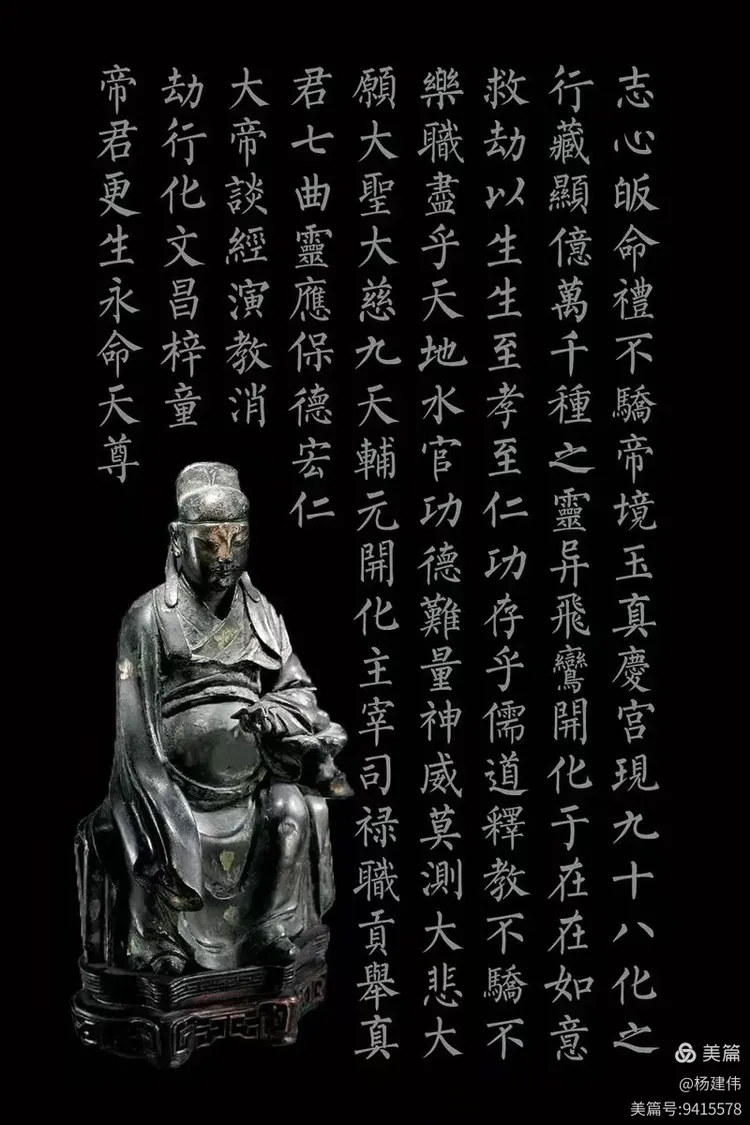 志心皈命禮不驕帝境玉真慶宮現九十八化之
行藏顯億萬千種之靈异飛鸞開化于在在如意
救劫以生生至孝至仁功存乎儒道釋教不驕不
樂職盡乎天地水官功德難量神威莫測大悲大
願大聖大慈九天輔元開化主宰司禄職貢舉真
君七曲靈應保德宏仁
大帝談經演教消
劫行化文昌梓童
帝君更生永命天尊
美篇
@杨建伟
美篇号:9415578